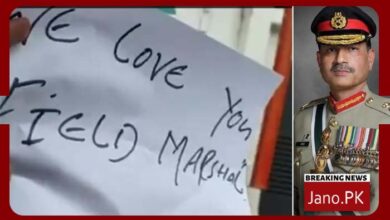 WE LOVE YOU
FIELD MARSHOL
BREAKING NEWS
Jano.PK